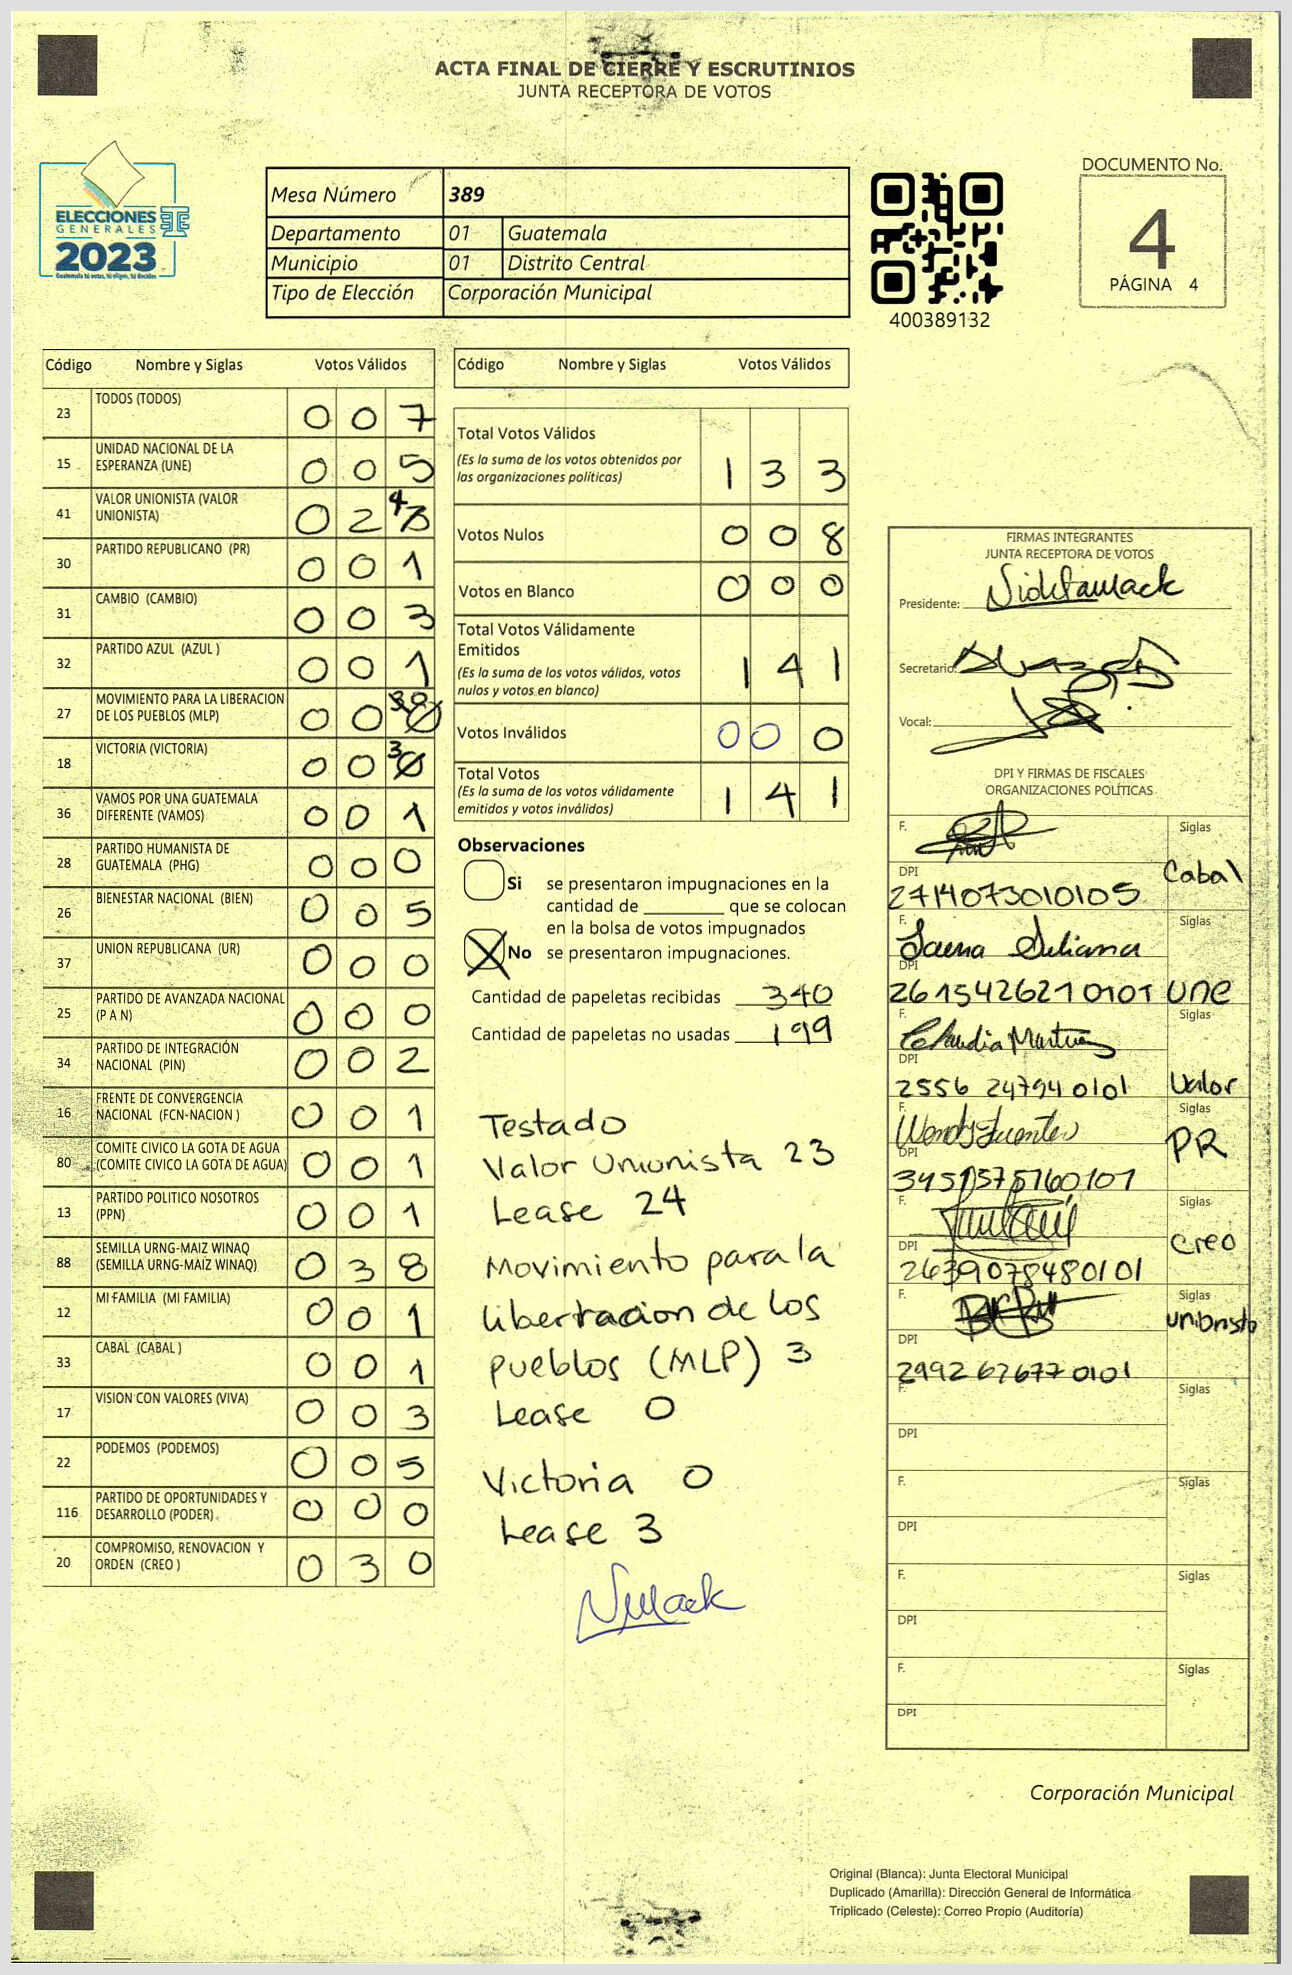 ACTA FINAL DE CIERRE Y ESCRUTINIOS
JUNTA RECEPTORA DE VOTOS
ELECCIONES
GENERALES
2023
Guatemala tú votas, tú eliges, tú decides
Mesa Número 389
Departamento 01 Guatemala
Municipio 01 Distrito Central
Tipo de Elección Corporación Municipal
400389132
DOCUMENTO No.
4
PÁGINA 4
Código Nombre y Siglas Votos Válidos
23 TODOS (TODOS) 0 0 7
15 UNIDAD NACIONAL DE LA
ESPERANZA (UNE) 0 0 5
41 VALOR UNIONISTA (VALOR
UNIONISTA) 0 2 4
30 PARTIDO REPUBLICANO (PR) 0 0 1
31 CAMBIO (CAMBIO) 0 0 3
32 PARTIDO AZUL (AZUL ) 0 0 1
27 MOVIMIENTO PARA LA LIBERACION
DE LOS PUEBLOS (MLP) 0 0 0
18 VICTORIA (VICTORIA) 0 0 3
36 VAMOS POR UNA GUATEMALA
DIFERENTE (VAMOS) 0 0 1
28 PARTIDO HUMANISTA DE
GUATEMALA (PHG) 0 0 0
26 BIENESTAR NACIONAL (BIEN) 0 0 5
37 UNION REPUBLICANA (UR) 0 0 0
25 PARTIDO DE AVANZADA NACIONAL
(P A N) 0 0 0
34 PARTIDO DE INTEGRACIÓN
NACIONAL (PIN) 0 0 2
16 FRENTE DE CONVERGENCIA
NACIONAL (FCN-NACION ) 0 0 1
80 COMITE CIVICO LA GOTA DE AGUA
(COMITE CIVICO LA GOTA DE AGUA) 0 0 1
13 PARTIDO POLITICO NOSOTROS
(PPN) 0 0 1
88 SEMILLA URNG-MAIZ WINAQ
(SEMILLA URNG-MAIZ WINAQ) 0 3 8
12 MI FAMILIA (MI FAMILIA) 0 0 1
33 CABAL (CABAL ) 0 0 1
17 VISION CON VALORES (VIVA) 0 0 3
22 PODEMOS (PODEMOS) 0 0 5
116 PARTIDO DE OPORTUNIDADES Y
DESARROLLO (PODER) 0 0 0
20 COMPROMISO, RENOVACION Y
ORDEN (CREO ) 0 3 0
Código Nombre y Siglas Votos Válidos
Total Votos Válidos
(Es la suma de los votos obtenidos por
las organizaciones políticas) 1 3 3
Votos Nulos 0 0 8
Votos en Blanco 0 0 0
Total Votos Válidamente
Emitidos
(Es la suma de los votos válidos, votos
nulos y votos en blanco) 1 4 1
Votos Inválidos 0 0 0
Total Votos
(Es la suma de los votos válidamente
emitidos y votos inválidos) 1 4 1
Observaciones
Si se presentaron impugnaciones en la
cantidad de ________ que se colocan
en la bolsa de votos impugnados
No se presentaron impugnaciones.
Cantidad de papeletas recibidas 340
Cantidad de papeletas no usadas 199
Testado
Valor Unionista 23
Lease 24
Movimiento para la
libertacion de los
pueblos (MLP) 3
Lease 0
Victoria 0
Lease 3
FIRMAS INTEGRANTES
JUNTA RECEPTORA DE VOTOS
Presidente:
Secretario:
Vocal:
DPI Y FIRMAS DE FISCALES
ORGANIZACIONES POLÍTICAS
F. Siglas
Cabal
DPI
2714073010105
F. Siglas
DPI
2615426210101 UNE
F. Claudia Martinez Siglas
DPI
2556 24794 0101 Valor
F. Wendy Fuentes Siglas
PR
DPI
3451575760101
F. Siglas
Creo
DPI
2639078480101
F. Siglas
unionista
DPI
2992 67677 0101
F. Siglas
DPI
F. Siglas
DPI
F. Siglas
DPI
F. Siglas
DPI
Corporación Municipal
Original (Blanca): Junta Electoral Municipal
Duplicado (Amarilla): Dirección General de Informática
Triplicado (Celeste): Correo Propio (Auditoría)